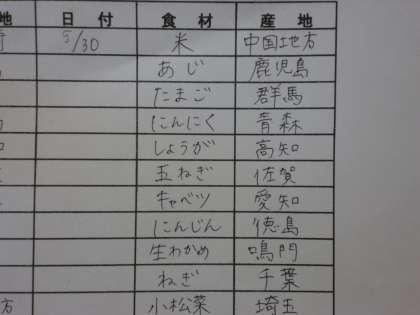 地 日付 食材 産地
5/30 米 中国地方
あじ 鹿児島
たまご 群馬
にんにく 青森
しょうが 高知
玉ねぎ 佐賀
キャベツ 愛知
にんじん 徳島
生わかめ 鳴門
ねぎ 千葉
方 小松菜 埼玉